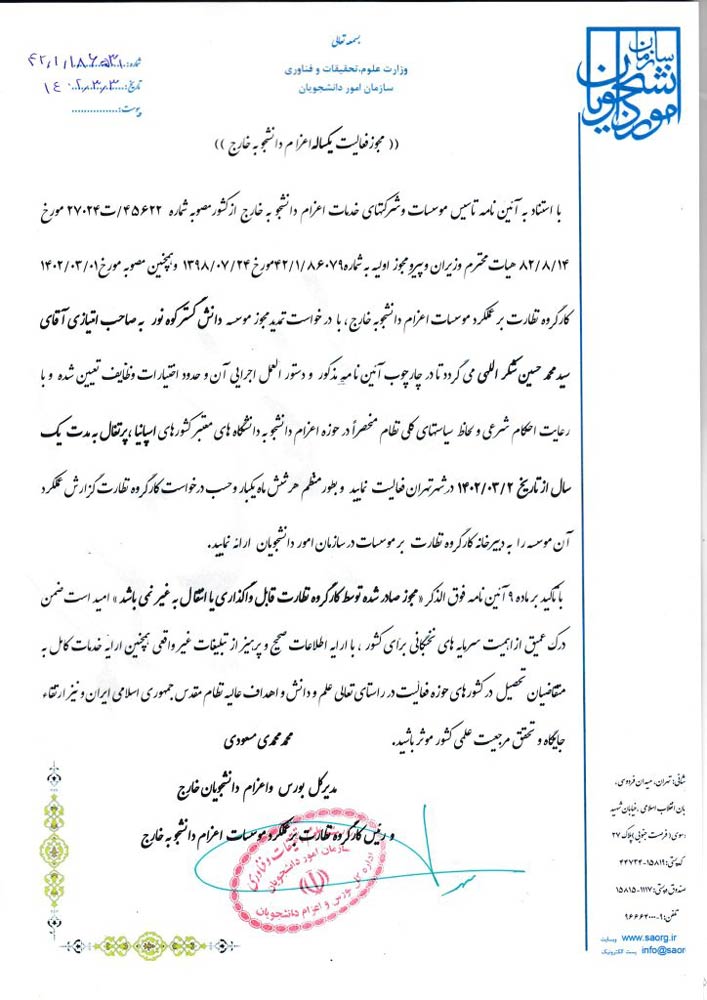 بسمه تعالی
وزارت علوم، تحقیقات و فناوری
سازمان امور دانشجویان
سازمان
امور دانشجویان
شماره: ۴۲/۱/۱۸۶۵۳۱
تاریخ: ۱۴۰۲/۳/۳
پیوست:
(( مجوز فعالیت یکساله اعزام دانشجو به خارج ))
با استناد به آئین نامه تاسیس موسسات و شرکتهای خدمات اعزام دانشجو به خارج از کشور مصوبه شماره ۴۵۶۲۲/ت۲۷۰۲۴ مورخ
۸۲/۸/۱۴ هیات محترم وزیران و پیرو مجوز اولیه به شماره ۴۲/۱/۸۶۰۷۹ مورخ ۱۳۹۸/۰۷/۲۴ وهمچنین مصوبه مورخ ۱۴۰۲/۰۳/۰۱
کارگروه نظارت بر عملکرد موسسات اعزام دانشجو به خارج ، با درخواست تمدید مجوز موسسه دانش گستر کوه نور به صاحب امتیازی آقای
سید محمد حسین شکر اللهی می گردد تا در چارچوب آئین نامه مذکور و دستور العمل اجرایی آن و حدود اختیارات وظایف تعیین شده و با
رعایت احکام شرعی و لحاظ سیاستهای کلی نظام منحصراً در حوزه اعزام دانشجو به دانشگاه های معتبر کشور های اسپانیا ، پرتغال به مدت یک
سال از تاریخ ۱۴۰۲/۰۳/۲ در شهر تهران فعالیت نمایید و بطور منظم هر شش ماه یکبار و حسب درخواست کارگروه نظارت گزارش عملکرد
آن موسسه را به دبیرخانه کارگروه نظارت بر موسسات در سازمان امور دانشجویان ارائه نمایید.
با تاکید بر ماده ۹ آئین نامه فوق الذکر «مجوز صادر شده توسط کارگروه نظارت قابل واگذاری یا انتقال به غیر نمی باشد» امید است ضمن
درک عمیق از اهمیت سرمایه های نخبگانی برای کشور ، با ارایه اطلاعات صحیح و پرهیز از تبلیغات غیر واقعی همچنین ارایه خدمات کامل به
متقاضیان تحصیل در کشور های حوزه فعالیت در راستای تعالی علم و دانش و اهداف عالیه نظام مقدس جمهوری اسلامی ایران و نیز ارتقاء
جایگاه و تحقق مرجعیت علمی کشور موثر باشید.
محمد محمدی مسعودی
مدیر کل بورس و اعزام دانشجویان خارج
و رئیس کارگروه نظارت بر عملکرد موسسات اعزام دانشجو به خارج
سازمان امور دانشجویان
اداره کل بورس و اعزام دانشجویان
شانی: تهران، میدان فردوسی،
بان انقلاب اسلامی، خیابان شهید
سوی (فرصت جنوبی) پلاک ۲۷
کدپستی: ۱۵۸۱۹-۴۴۷۳۴
صندوق پستی: ۱۱۱۷-۱۵۸۱۵
تلفن: ۹-۹۶۶۶۴۰۰۰
وبسایت www.saorg.ir
پست الکترونیک info@saor